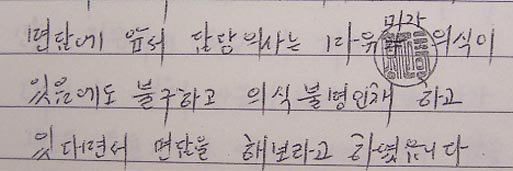 미라
면담에 앞서 담당의사는 마유미 의식이
있음에도 불구하고 의식불명인채 하고
있다면서 면담을 해보라고 하였읍니다